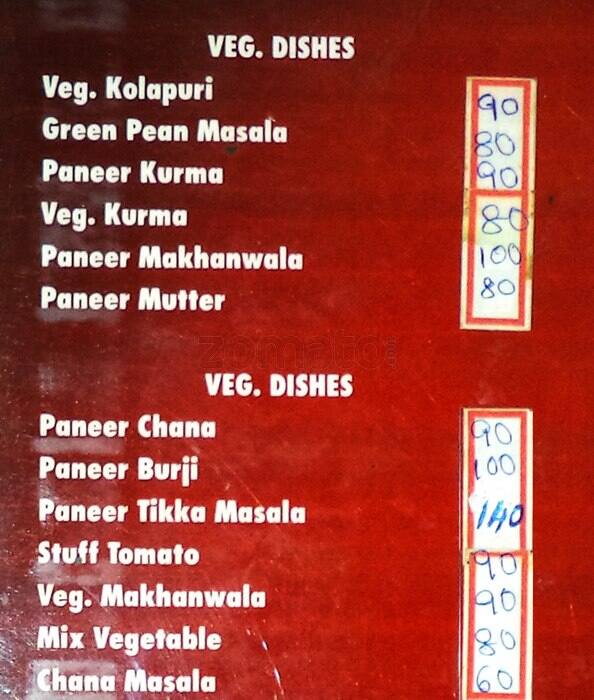 VEG. DISHES
Veg. Kolapuri 90
Green Pean Masala 80
Paneer Kurma 90
Veg. Kurma 80
Paneer Makhanwala 100
Paneer Mutter 80
zomato
VEG. DISHES
Paneer Chana 90
Paneer Burji 100
Paneer Tikka Masala 140
Stuff Tomato 90
Veg. Makhanwala 90
Mix Vegetable 80
Chana Masala 60